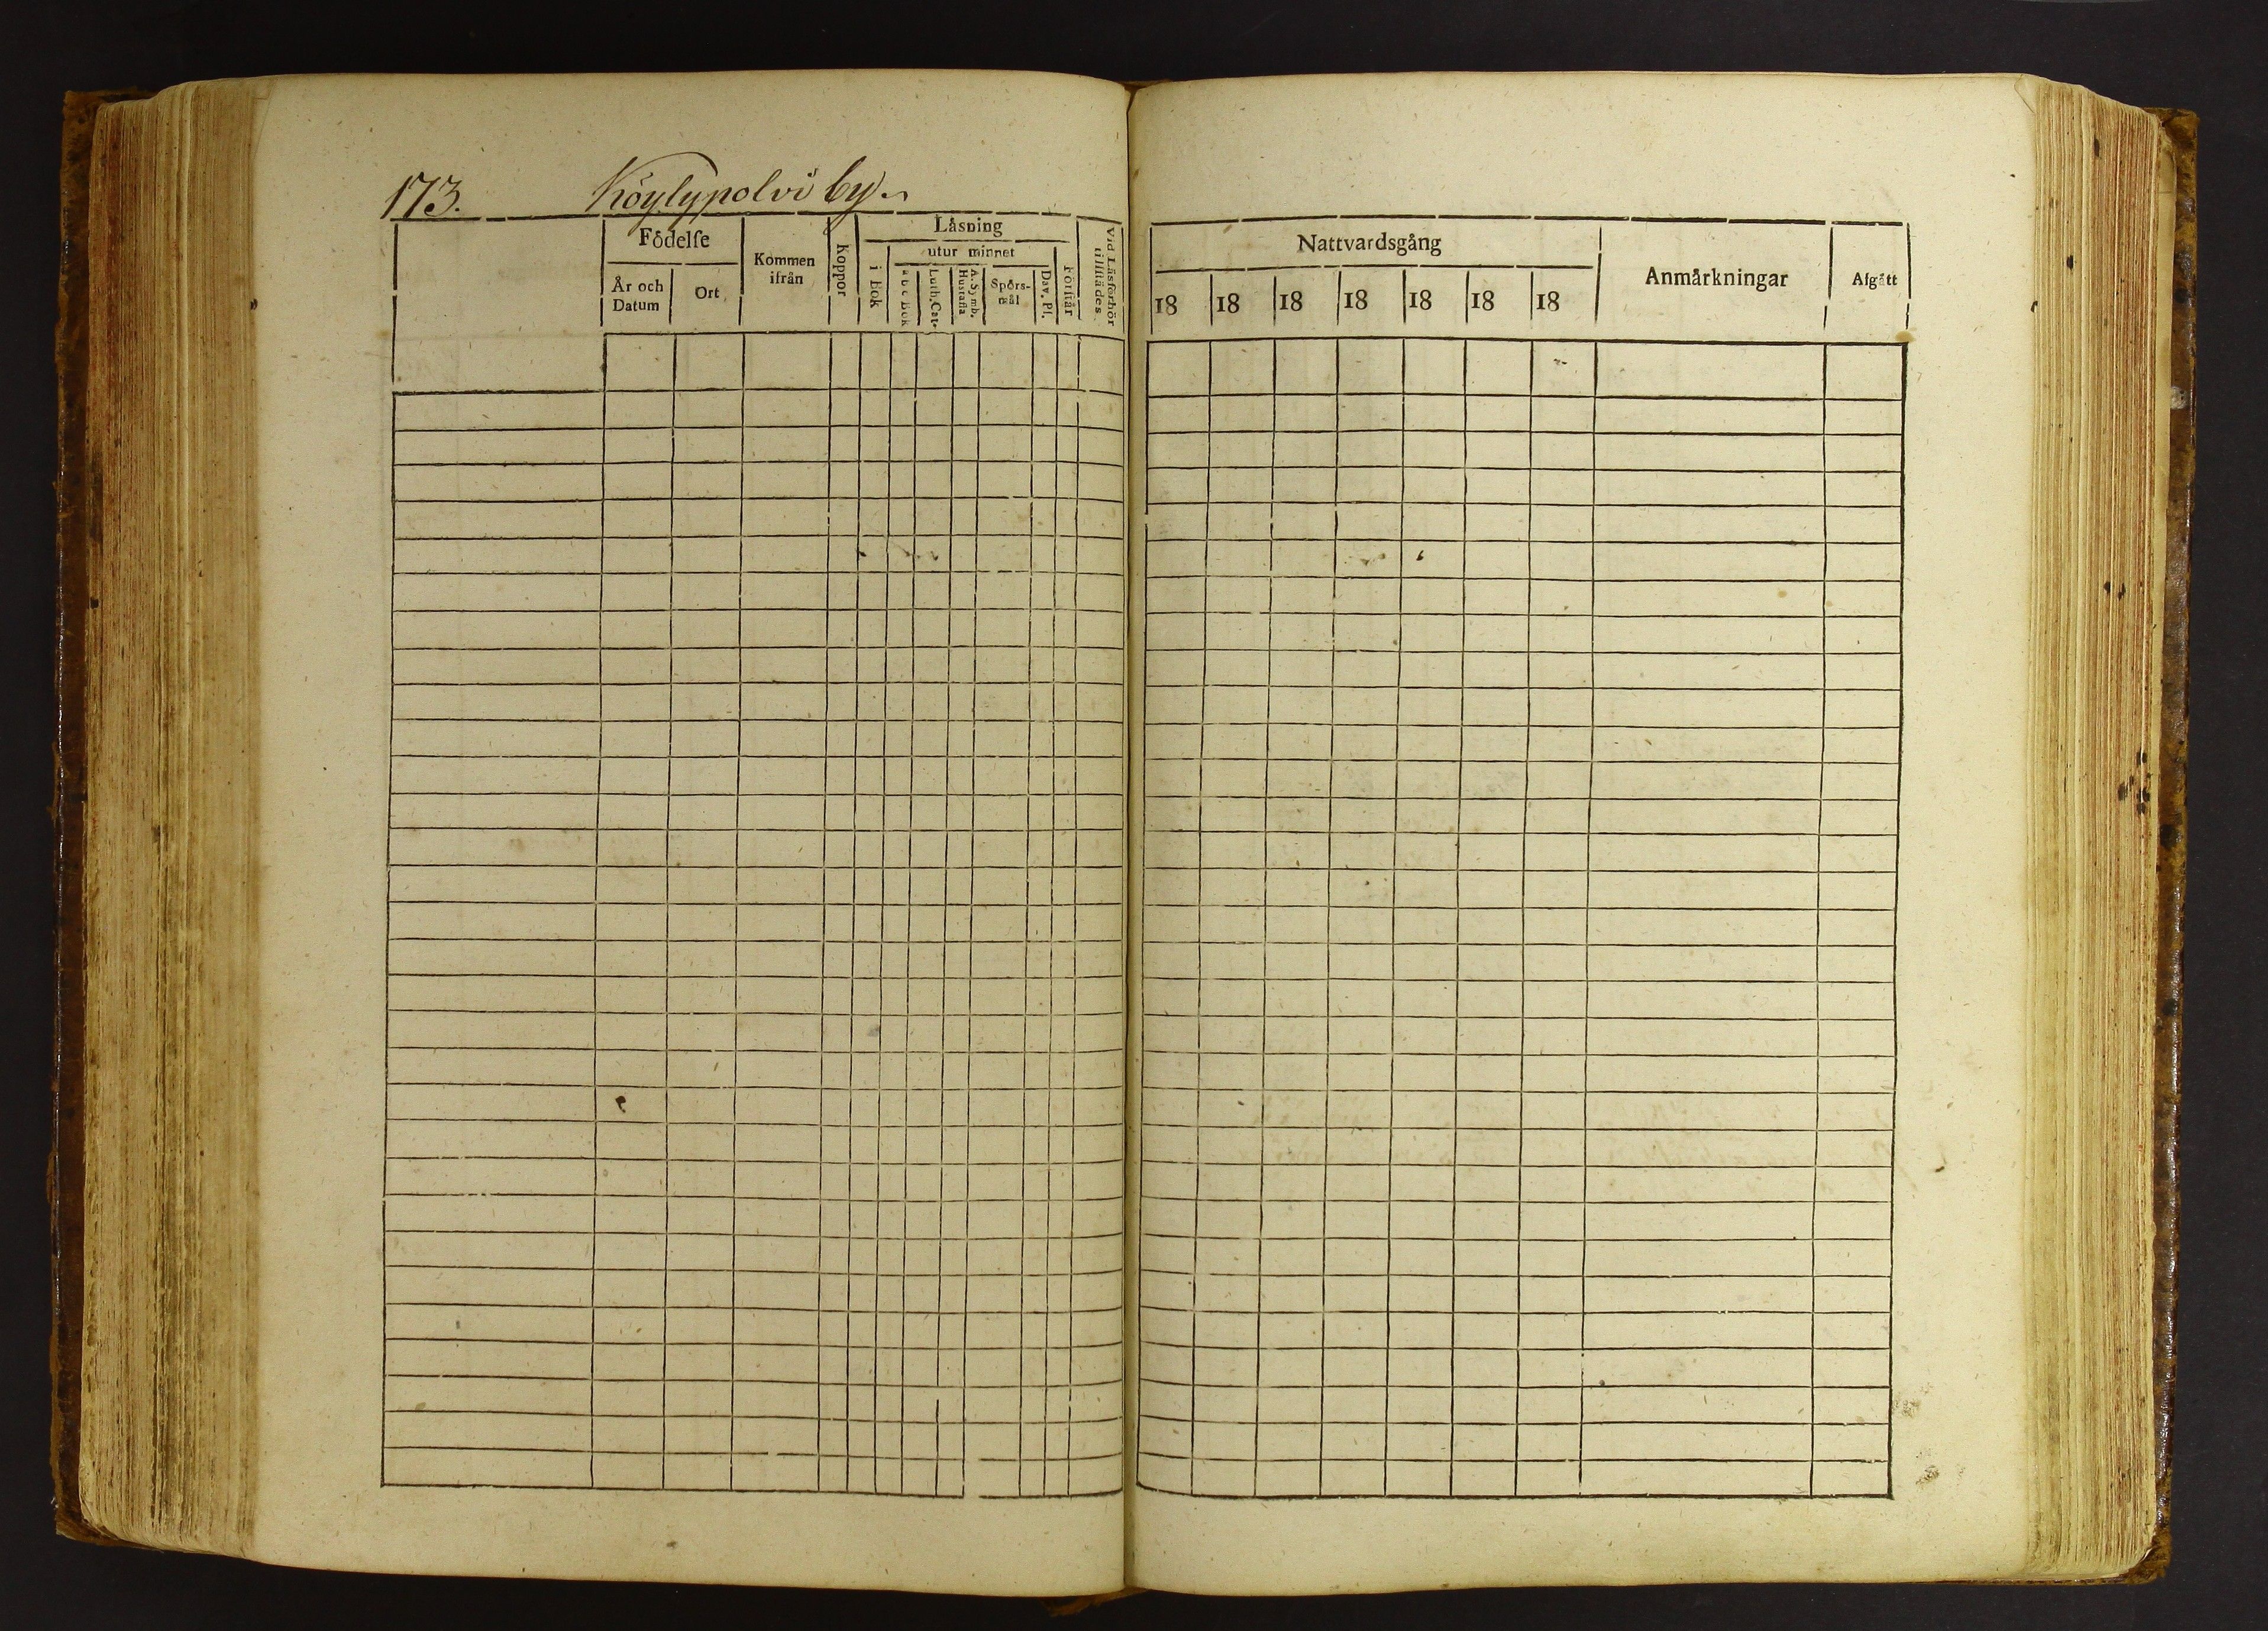 173. Köylypolvi by.
Födelse
År och Datum
Ort
Kommen ifrån
Koppor
Låsning
i Bok
utur minnet
a b c Bok
Luth. Cat.
A. Symb. Hustafla
Spörs-mål
Dav. Ps.
Förstår
Vid Låsförhör tillstädes
Nattvardsgång
18 18 18 18 18 18 18
Anmärkningar
Afgått